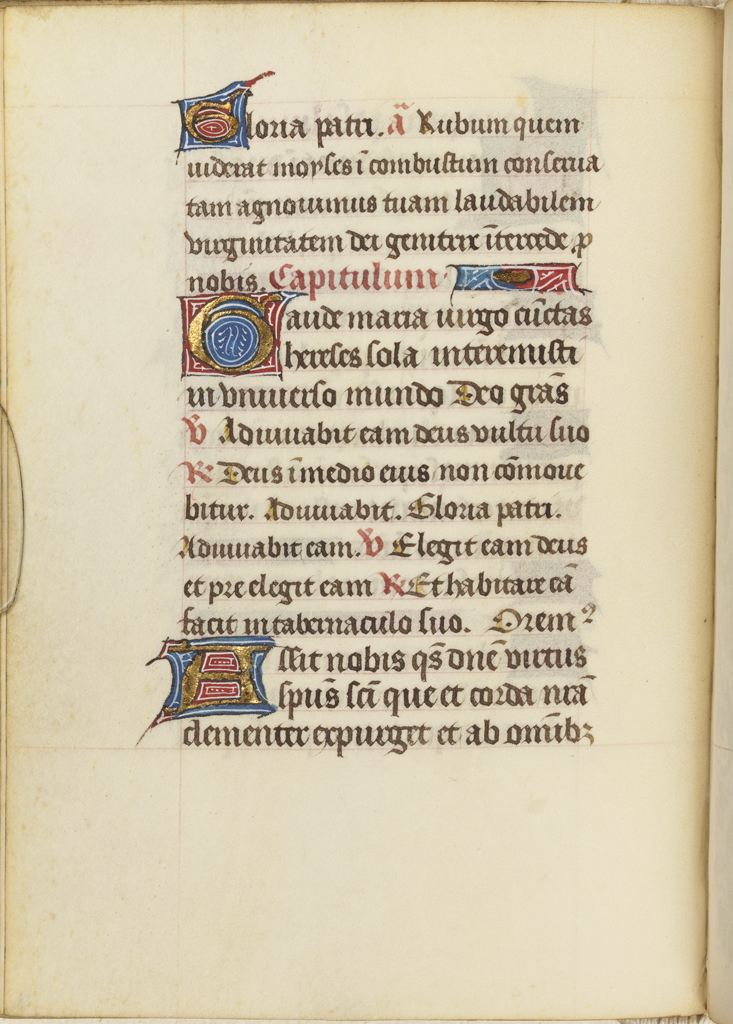 Gloria patri. ā Rubum quem
uiderat moyses ī combustum conserua
tam agnouimus tuam laudabilem
virginitatem dei genitrix ītercede ꝓ
nobis. Capitulum
Gaude maria uirgo cūctas
hereses sola interemisti
in vniuerso mundo Deo grās
℣ Adiuuabit eam deus vultu suo
℟ Deus ī medio eius non cōmoue
bitur. Adiuuabit. Gloria patri.
Adiuuabit eam. ℣ Elegit eam deus
et pre elegit eam ℟ Et habitare eā
facit in tabernaculo suo. Oremꝰ
Assit nobis qs̄ dn̄e virtus
spūs sc̄i que et corda nr̄a
clementer expurget et ab om̄ibꝫ